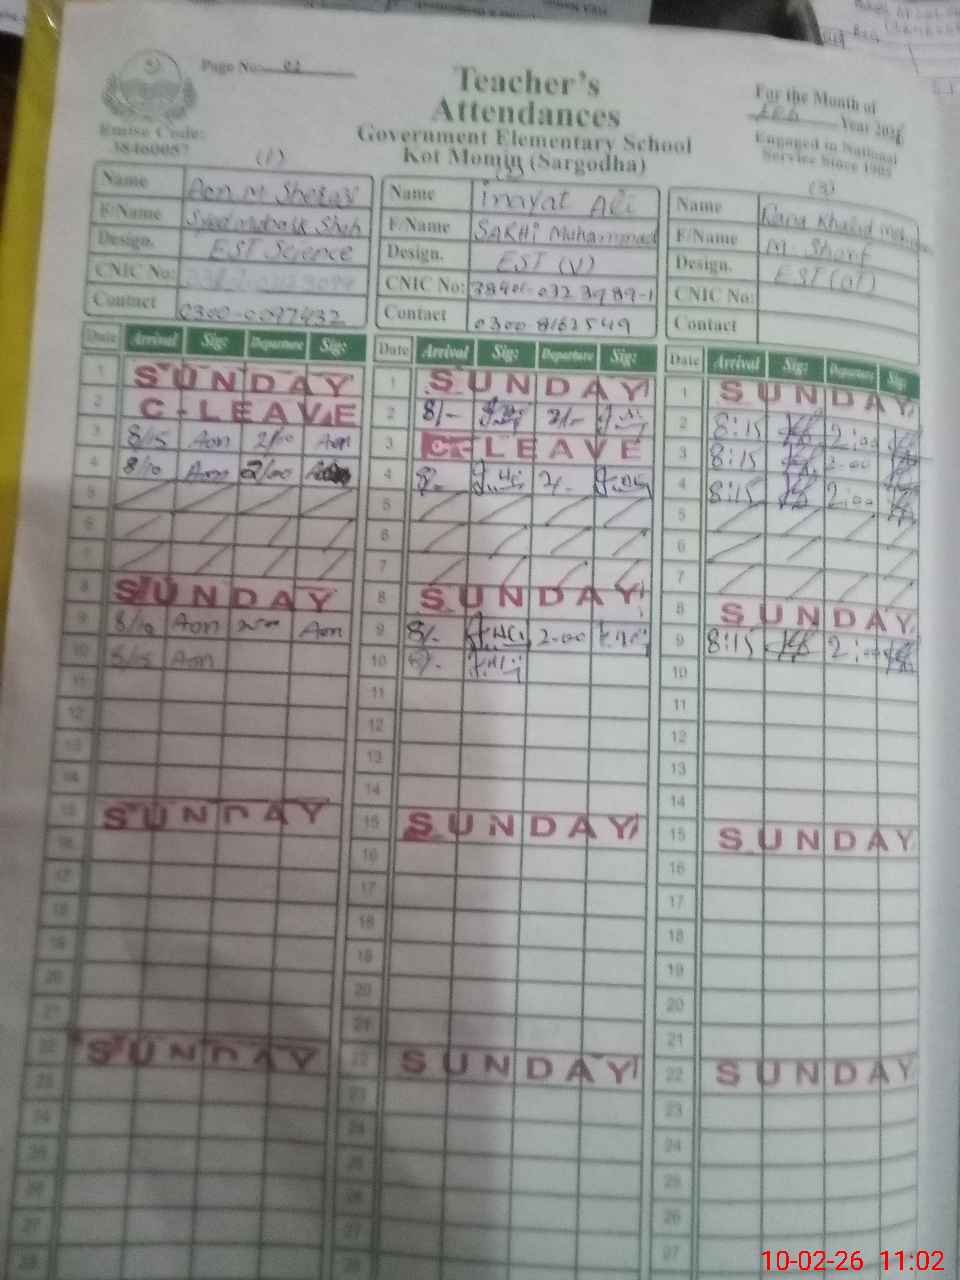 Page No: 02
Teacher's
Attendances
Government Elementary School
Kot Momin (Sargodha)
For the Month of
Feb Year 2026
Engaged in National
Service Since 1905
Emise Code:
38460057
(1)
Name Aon M Sherazi
F/Name Syed Mubarik Shah
Design. EST Science
CNIC No:
Contact 0300-6097432
Date Arrival Sig: Departure Sig:
1 SUNDAY
2 C-LEAVE
3 8/15 Aon 2/00 Aon
4 8/10 Aon 2/00
5
6
7
8 SUNDAY
9 8/10 Aon 2/00 Aon
10 8/15 Aon
11
12
13
14
15 SUNDAY
16
17
18
19
20
21
22 SUNDAY
23
24
25
26
27
28
Name inayat Ali
F/Name SAKHi Muhammad
Design. EST (V)
CNIC No: 38401-0323989-1
Contact 0300 8162549
Date Arrival Sig: Departure Sig:
1 SUNDAY
2 8/- 2/-
3 C-LEAVE
4 8/- 2/-
5
6
7
8 SUNDAY
9 8/- 2-00
10 8/-
11
12
13
14
15 SUNDAY
16
17
18
19
20
21
22 SUNDAY
23
24
25
26
27
28
(3)
Name Rana Khalid
F/Name M. Sharif
Design. EST (AT)
CNIC No:
Contact
Date Arrival Sig: Departure Sig:
1 SUNDAY
2 8:15 2:00
3 8:15 2:00
4 8:15 2:00
5
6
7
8 SUNDAY
9 8:15 2:00
10
11
12
13
14
15 SUNDAY
16
17
18
19
20
21
22 SUNDAY
23
24
25
26
27
10-02-26 11:02